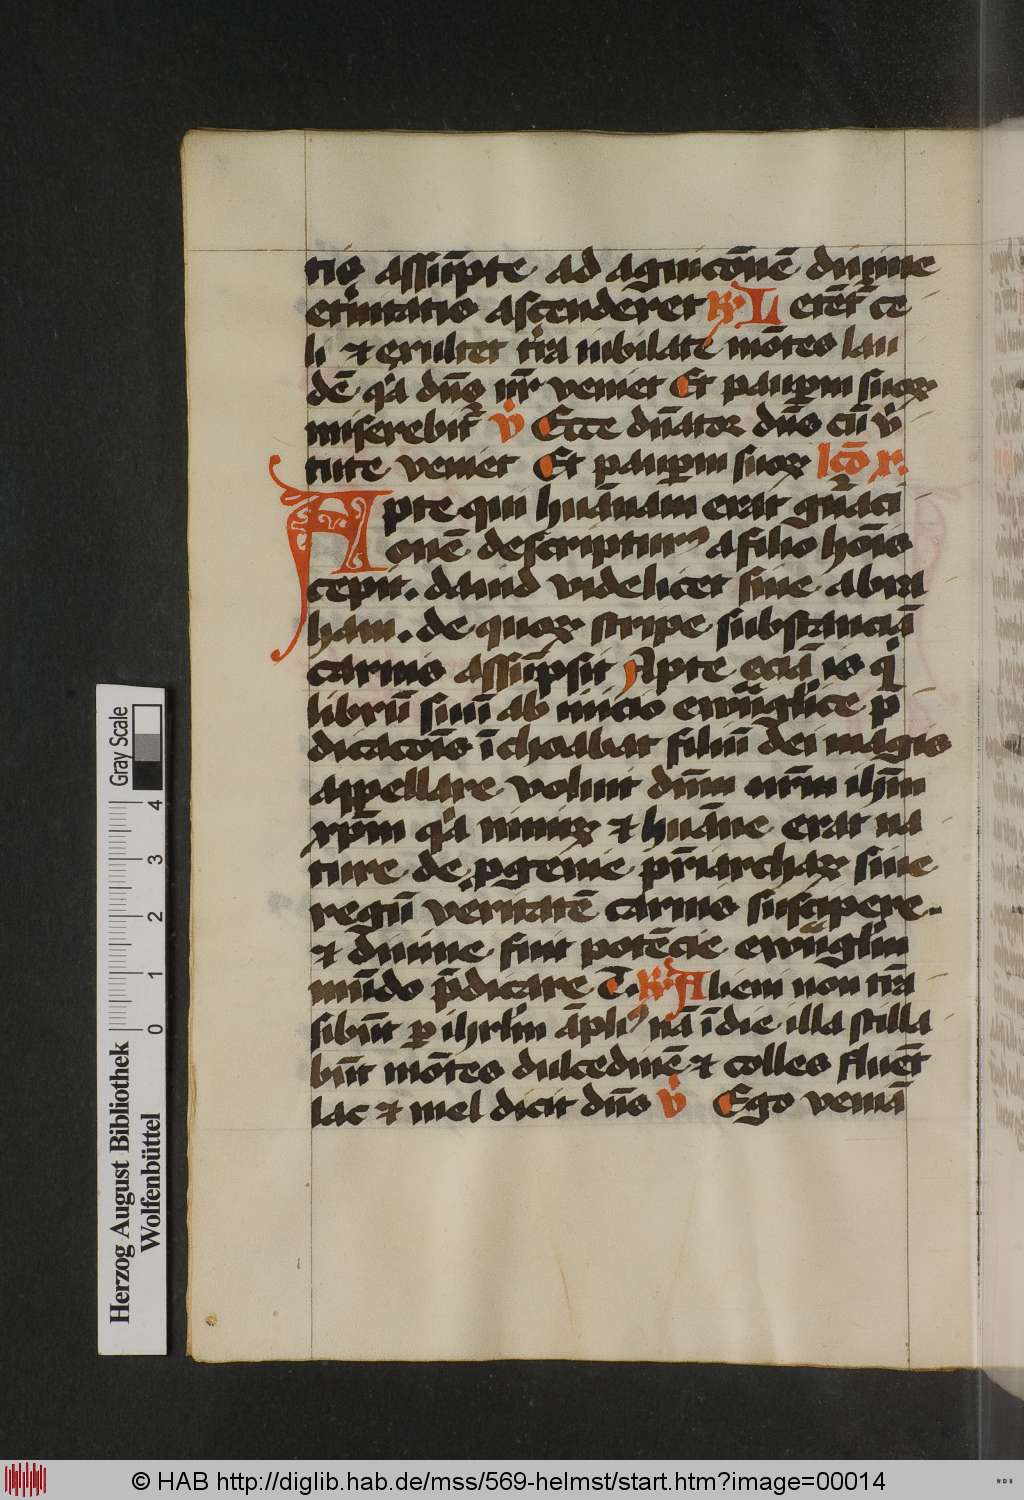 tis assūpte ad agnicōnē diuine
et̓nitatis ascenderet ℟ Letēt̄ ce
li ⁊ exultet t̓ra iubilate mōtes lau
dē q̓a dn̄s nr̄ veniet Et paup̲um suoꝝ
miserebit̄ ℣ Ecce dn̄ator dn̄s cū v̓
tute veniet Et paup̲um suoꝝ lcō x.
Apte qui huānam erat gn̄aci
onē descripturꝰ a filio hōīs
cepit. dauid videlicet siue abra
ham. de quoꝝ stirpe substanciā
carnis assūpsit Apte eciā is q̓
librū suū ab inicio ewn̄glice p̄
dicacōīs īchoabat filiū dei magis
appellare voluit dn̄m nr̄m ih̄m
xp̄m q̓a nimiꝝ ⁊ huāne erat na
ture de p̱genie pr̄iarchaꝝ siue
regū veritatē carnis suscipere.
⁊ diuine fuit potēcie ewn̄gliū
mūdo p̄dicare T. ℟ Aliem non t̓ra
sibūt p̲ ihrl̄m āplꝰ nā ī die illa stilla
būt mōtes dulcedinē ⁊ colles fluēt
lac ⁊ mel dicit dn̄s ℣ Ego veniā
Gray Scale
4
3
2
1
0
Herzog August Bibliothek
Wolfenbüttel
© HAB http://diglib.hab.de/mss/569-helmst/start.htm?image=00014